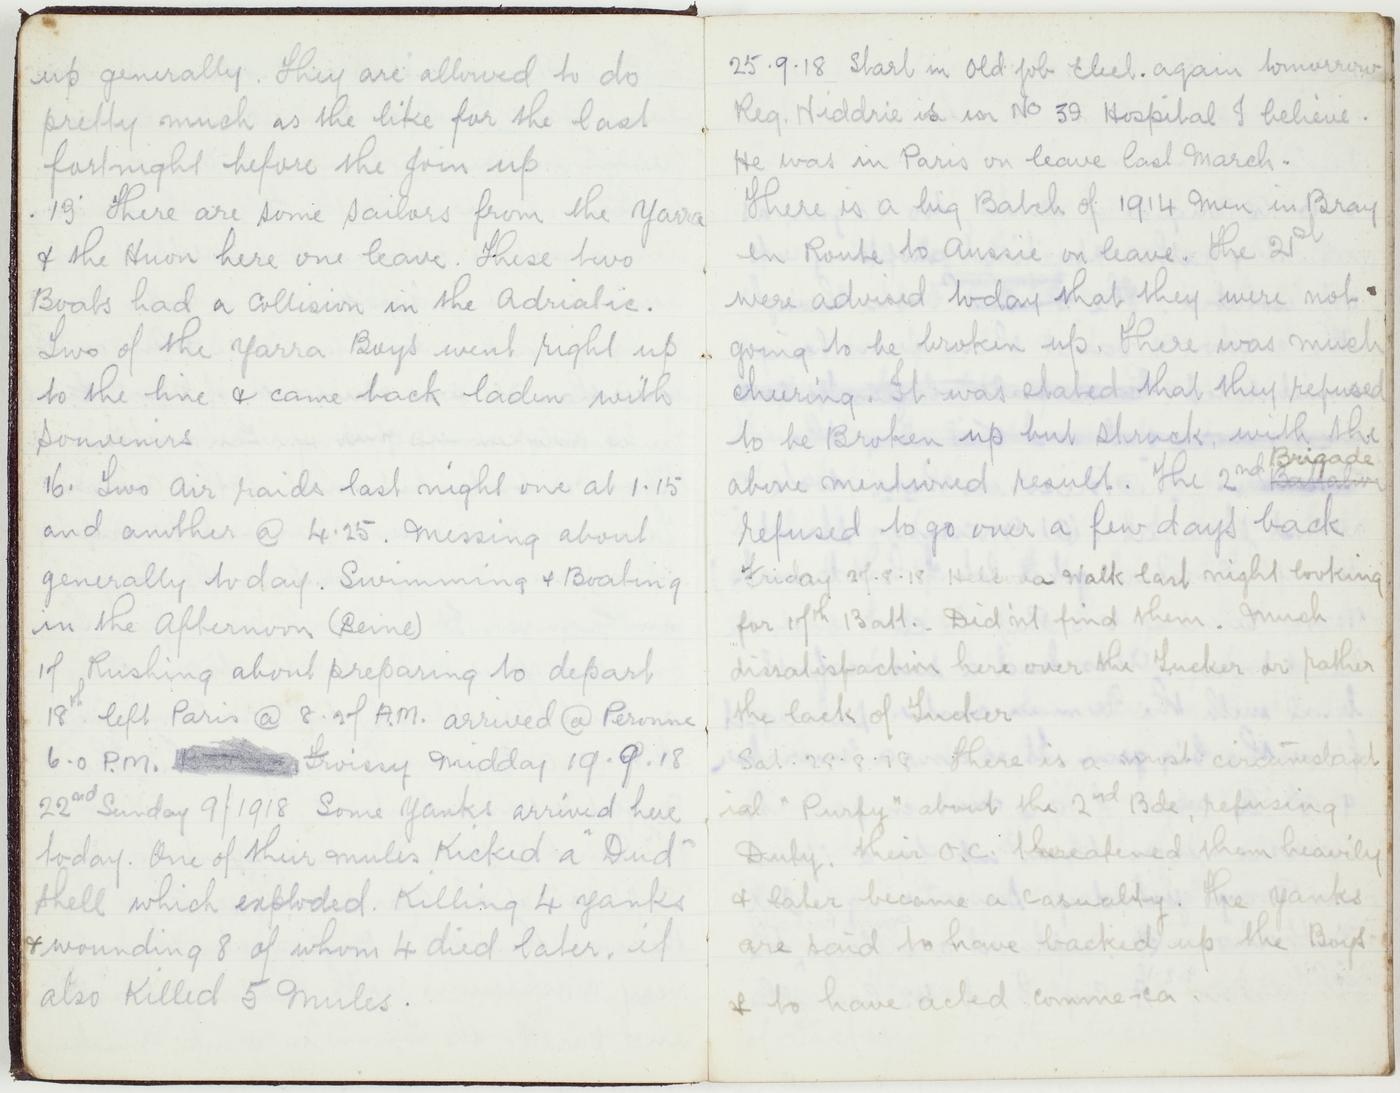 up generally. They are allowed to do
pretty much as the like for the last
fortnight before the Join up
. 15 There are some sailors from the Yarra
& the Huon here one leave. These two
Boats had a Collision in the Adriatic.
Two of the Yarra Boys went right up
to the line & came back laden with
Souvenirs
16. Two Air raids last night one at 1.15
and another @ 4.25. Messing about
generally today. Swimming & Boating
in the Afternoon (Seine)
17 Rushing about preparing to depart
18th left Paris @ 8.27 A.M. arrived @ Peronne
6.0 P.M. Midday 19.9.18
22nd Sunday 9/1918 Some Yanks arrived here
today. One of their mules Kicked a "Dud"
shell which exploded. Killing 4 Yanks
& wounding 8 of whom 4 died later. it
also Killed 5 Mules.
25.9.18 Start in Old Job Elect. again tomorrow
Reg. Niddrie is in No 39 Hospital I believe.
He was in Paris on leave last March.
There is a big Batch of 1914 Men in Bray
en Route to Aussie on leave. The 21st
were advised today that they were not
going to be broken up. There was much
cheering. It was stated that they refused
to be Broken up but struck, with the
above mentioned result. The 2nd Brigade Battalion
refused to go over a few days back
Friday 27.8.18 a Walk last night looking
for 17th Batt. Didn't find them. Much
dissatisfaction here over the Tucker or rather
the lack of Tucker
Sat. 28.8.18 There is a most circumstant
ial "Purfy" about the 2nd Bde, refusing
Duty. their O.C. threatened them heavily
& later became a casualty. The Yanks
are said to have backed up the Boys
& to have acted comme-ca.